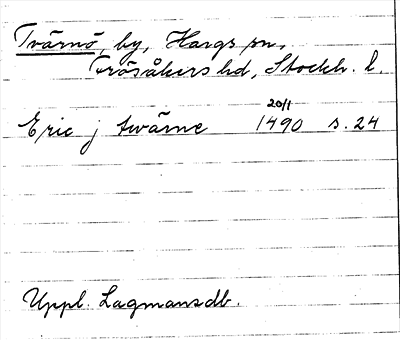 Tvärnö, by, Hargs sn,
Frösåkers hd, Stockh. l.
20/1
Eric j twärne 1490 s. 24
Uppl. Lagmansdb.